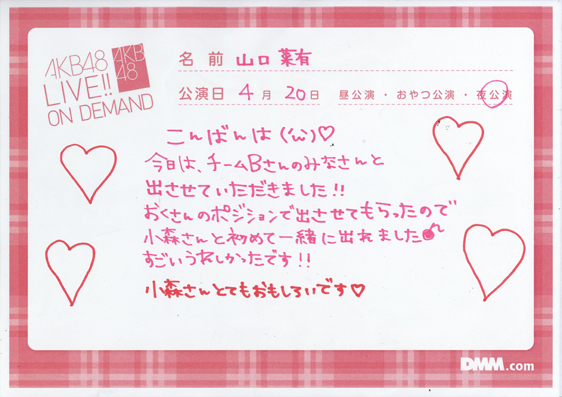 AKB48
LIVE!!
ON DEMAND
AKB
48
名 前 山口 菜有
公演日 4 月 20 日 昼公演 ・ おやつ公演 ・ 夜公演
こんばんは(^^)♡
今日は、チームBさんのみなさんと
出させていただきました!!
おくさんのポジションで出させてもらったので
小森さんと初めて一緒に出れました♪
すごいうれしかったです!!
小森さんとてもおもしろいです♡
DMM.com